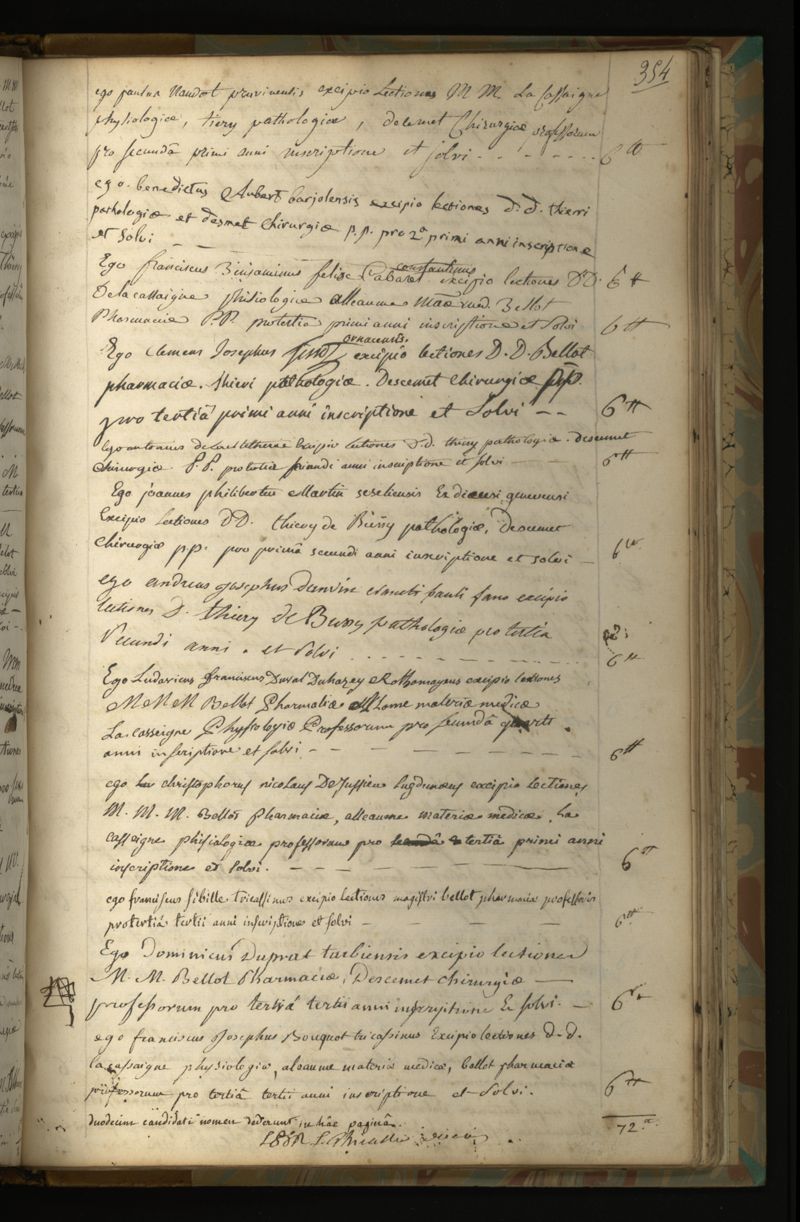 354
ego paulus Naudot pruvinensis excipio Lectiones M M. La Cassaigne
physiologiæ, tiery pathologiæ, decemet Chirurgiæ professorum
pro secundâ primi anni inscriptione et solvi - - - - - - - 6 tt
ego benedictus Aubert barjolensis excipio lectiones d. d. thierri
pathologiæ et desmet Chirurgiæ p.p. pro 2ª primi anni inscriptione
et solvi
Ego franciscus Binjaminus felix constantinus excipio lectiones D. D. 6 tt
De la cassaigne phisiologiæ alleaume mat med. Bellot
Pharmaciæ P. P. pro tertia primi anni inscriptione et solvi 6 tt
Ego Clemens Josephus ornacensis excipio lectiones D. D. Bellot
pharmaciæ. thieri pathologiæ. Descemet Chirurgiæ pp.
pro tertiâ primi anni inscriptione et Solvi - - 6 tt
Ego antonius excipio lectiones D. d. thiery pathologiæ. descemet
chirurgiæ P. P. pro tertia anni inscriptione et solvi 6 tt
Ego joannes philibertus Martin
Excipio Lectiones DD. thiery de Bussy pathologiæ, Descemet
Chirurgiæ pp. pro primâ secundi anni inscriptione et solvi - 6 tt
ego andreas josephus sancti pauli fano excipio
lectiones D. thiery de Bussy pathologiæ pro tertia
Secundi anni. et Solvi - - - - - - - - 6 tt
Ego Ludovicus franciscus Duval Duhazey Rothomagens excipio lectiones
M M M Bellot Pharmatiæ materiæ medicæ
La Casseigne Physiologiæ Professorum pro secundâ quarti
anni inscriptione et solvi - - - - - - 6 tt
ego christophorus nicolaus De Jussieu Lugdunæus excipio Lectiones
M. M. M. Bellot Pharmaciæ, alleaume materiæ medicæ. La
Cassaigne phisiologiæ professorum pro tertiâ primi anni
inscriptione et solvi. - - - - 6 tt
ego franciscus sibille tricassinus excipio Lectiones magistri bellot pharmaciæ professoris
pro tertiâ tertii anni inscriptione et solvi - - - - 6 tt
Ego Dominicus Duprat tarbiensis excipio lectiones
M. M. Bellot Pharmaciæ, Descemet chirurgiæ
professorum pro tertiâ tertii anni inscriptione Et solvi. - 6 tt
ego franciscus Josephus Bouquot tricassinus Excipio lectiones d. d.
la cassaigne physiologiæ, aleaume materiæ medicæ, bellot pharmaciæ
professorum pro tertiâ tertii anni inscriptione et Solvi. 6 tt
duodecim candidati nomen dederunt in hâc paginâ. 72